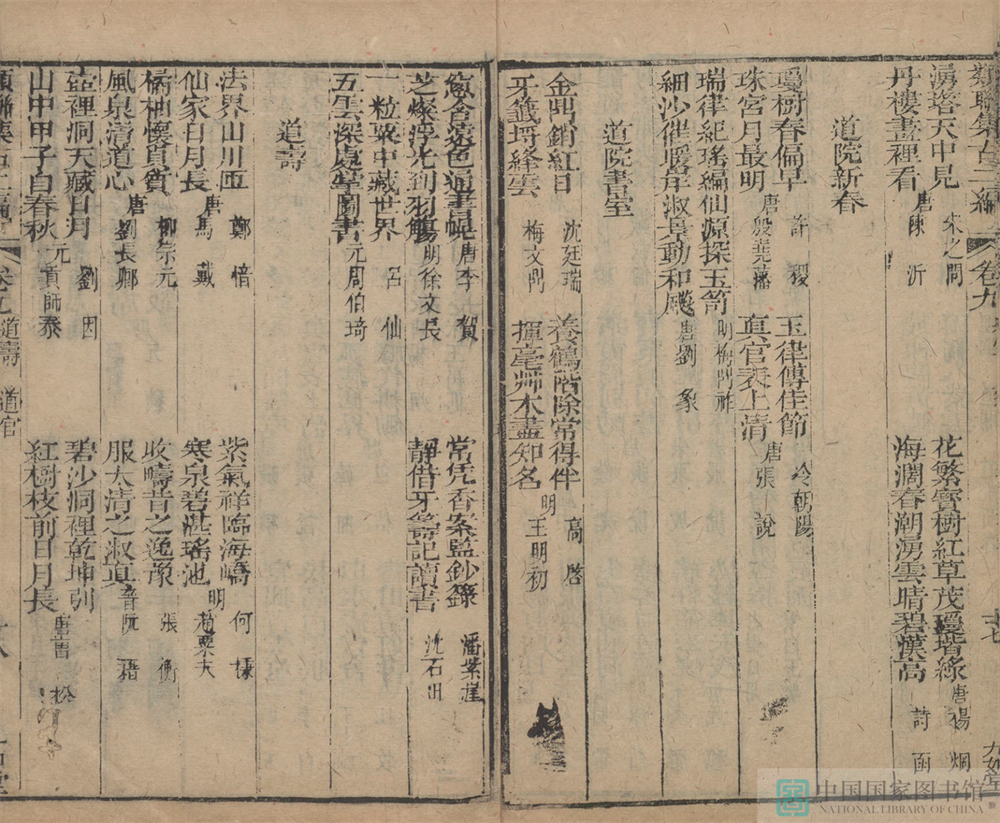 類聯集古二編 卷九 九如堂
濵落天中見 宋之問 花繁寳樹紅草茂瓊堦綠 唐楊烱
丹樓畫裡看 唐陳沂 海濶春潮湧雲晴碧漢高 許 凾
道院新春
瓊樹春偏早 許稷 玉律傳佳節 冷朝陽
珠宮月最明 唐殷堯藩 真官表上清 唐張說
瑞律紀瑤編仙源探玉笥 明梅門祚
細沙催暖岸淑景動和飈 唐劉象
道院書室
金鼎銷紅日 沈廷瑞 養鶴階除常得伴 高啓
牙籤埒絳雲 梅文門 揮毫艸木盡知名 明王明初
窻含遠色通書幌 唐李賀 常凭香案監鈔籙 潘
芝燦浮光到羽觴 明徐文長 靜借牙籤記讀書 沈石田
一粒粟中藏世界 呂仙
五雲深處擘圖書 元周伯琦
道壽
法界山川匝 鄭愔 紫氣祥臨海嶠 何
仙家日月長 唐馬戴 寒泉碧湛瑤池 明趙栗夫
橘柚懷貞質 柳宗元 收疇昔之逸豫 張衡
風泉清道心 唐劉長卿 服太清之淑真 晉阮籍
壺裡洞天藏日月 劉因 碧沙洞裡乾坤別
山中甲子自春秋 元貢師泰 紅樹枝前日月長 唐曹松
類聯集古二編 卷九 道壽 道官
中国国家图书馆
NATIONAL LIBRARY OF CHINA